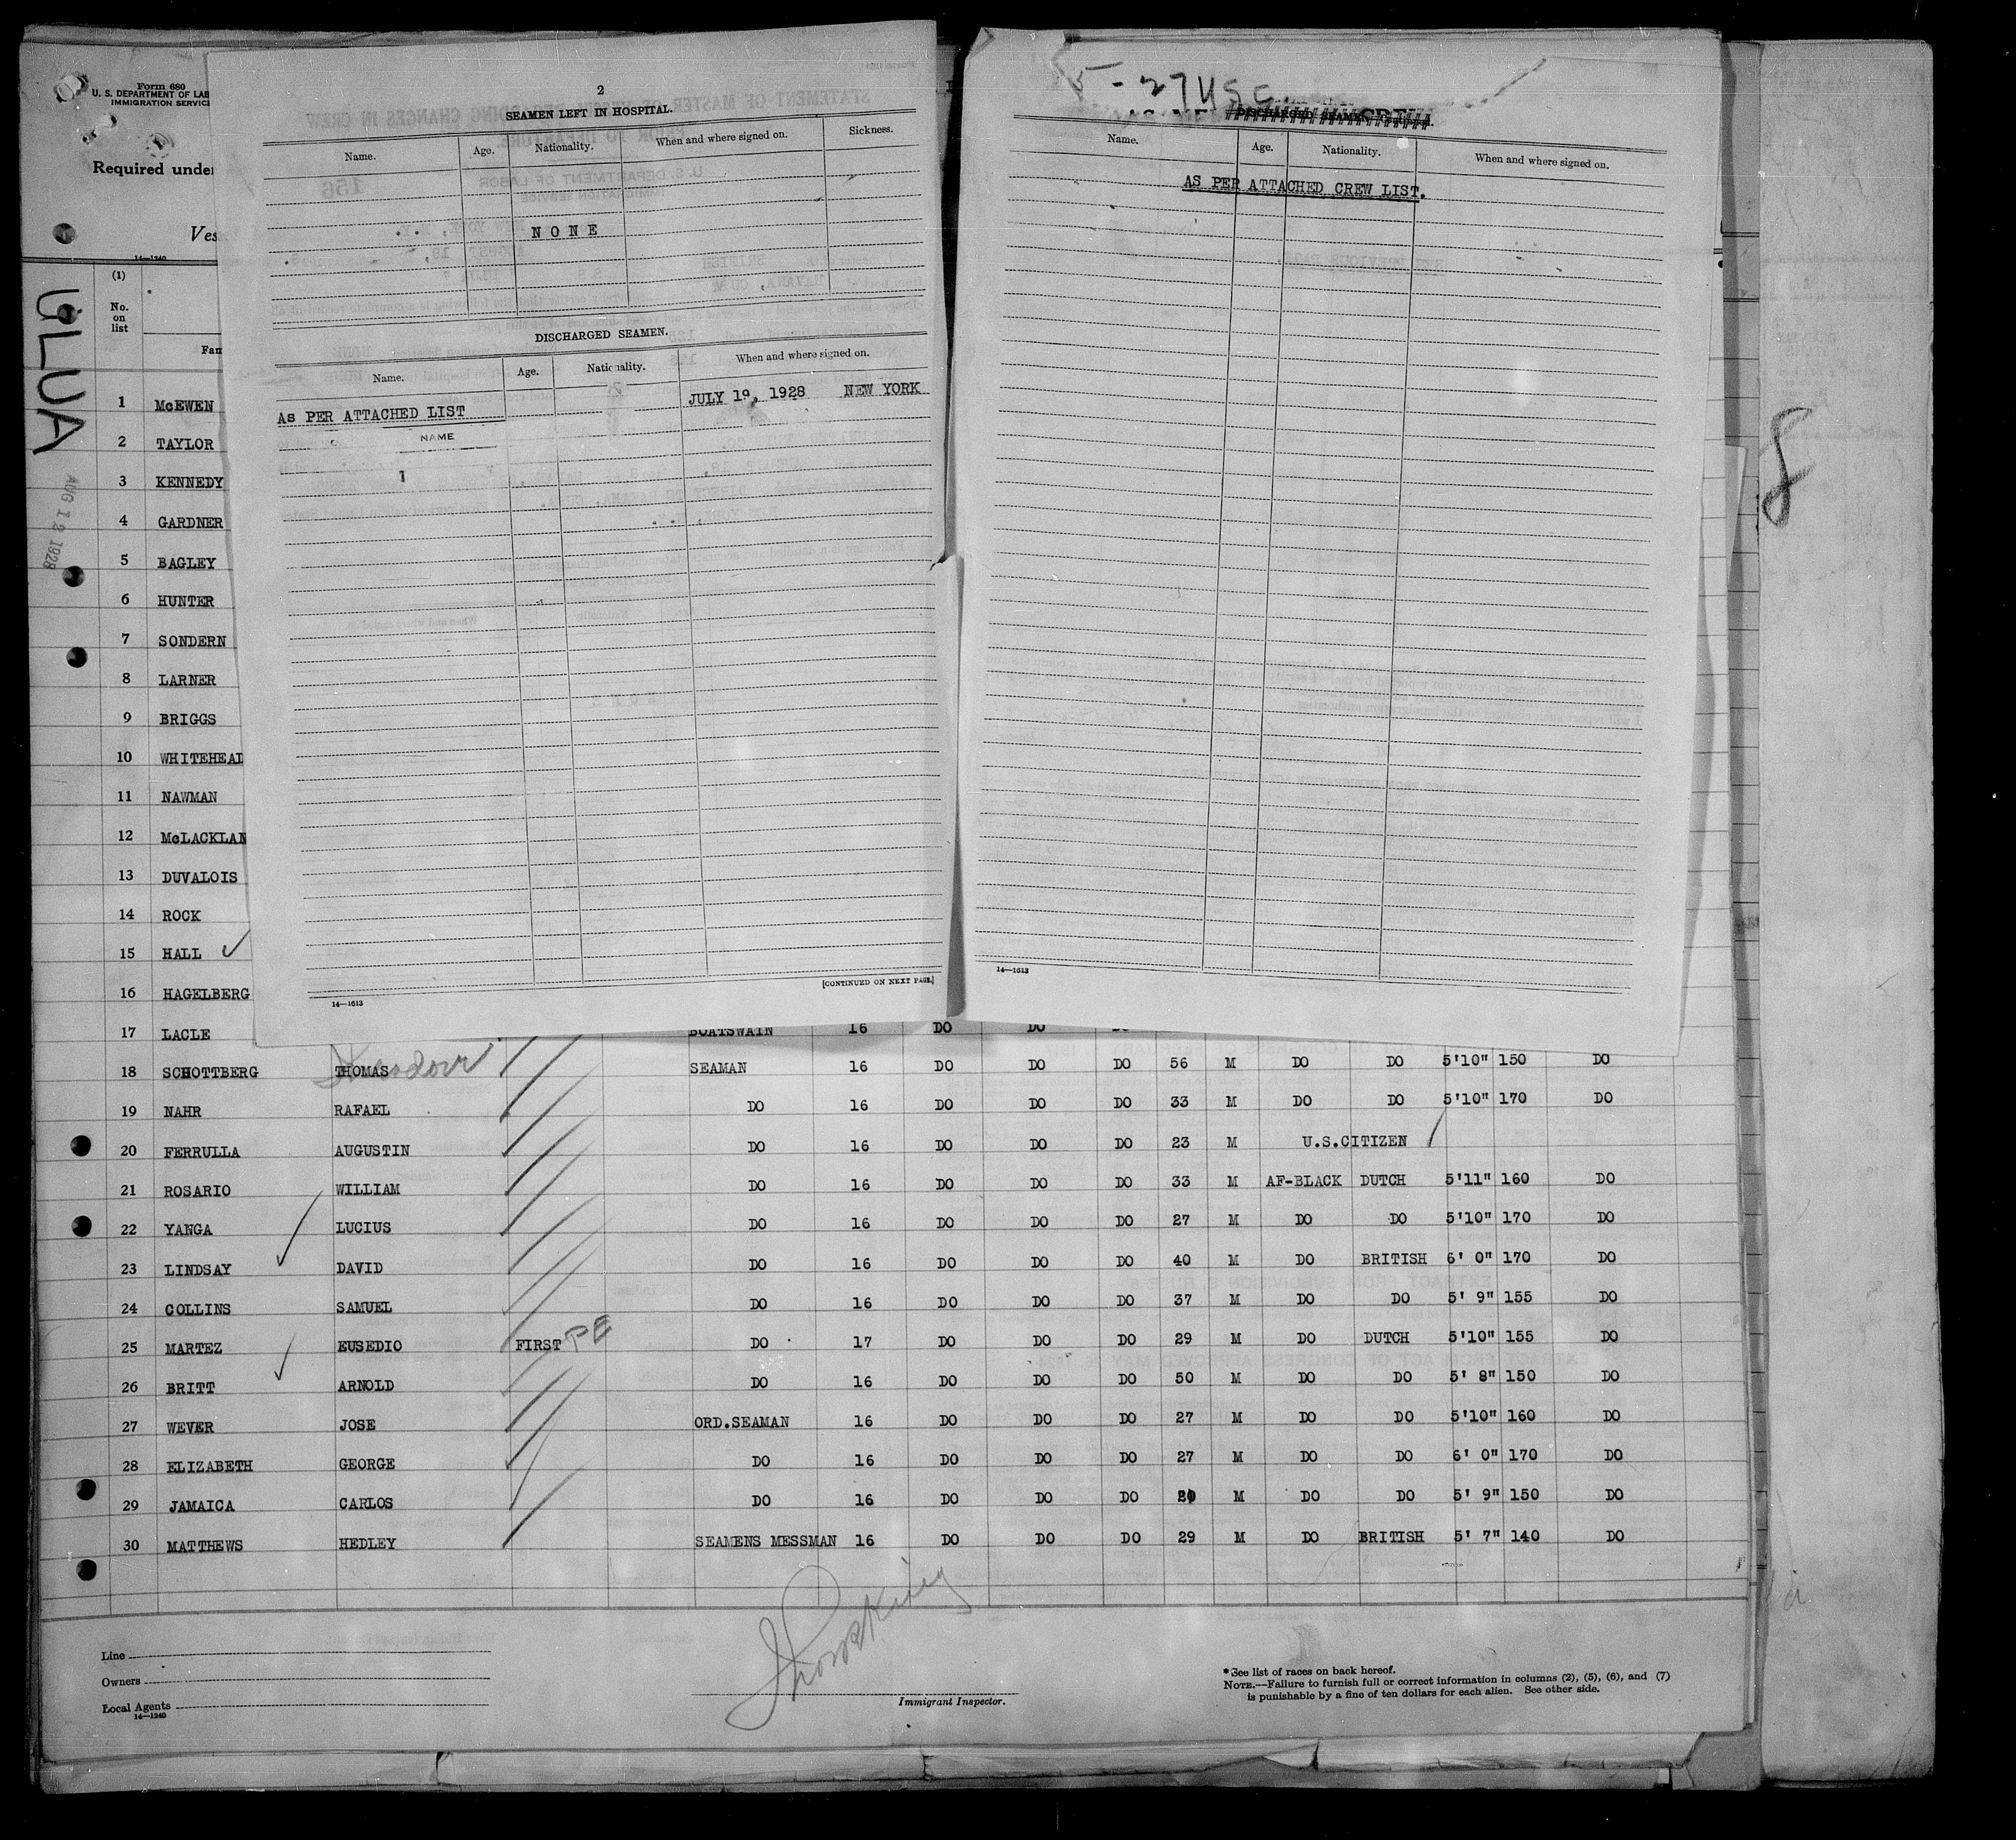 Form 680
U. S. DEPARTMENT OF LAB
IMMIGRATION SERVIC
Required unde
Ves
14—1240
ULUA
AUG 12 1928
2
SEAMEN LEFT IN HOSPITAL.
Name. Age. Nationality. When and where signed on. Sickness.
NONE
DISCHARGED SEAMEN.
Name. Age. Nationality. When and where signed on.
AS PER ATTACHED LIST JULY 19, 1928 NEW YORK
NAME
14—1613
[CONTINUED ON NEXT PAGE.]
5 - 27 USC
Name. Age. Nationality. When and where signed on.
AS PER ATTACHED CREW LIST.
14—1613
8
(1)
No. on list
Fam
1 McEWEN
2 TAYLOR
3 KENNEDY
4 GARDNER
5 BAGLEY
6 HUNTER
7 SONDERN
8 LARNER
9 BRIGGS
10 WHITEHEAD
11 NAWMAN
12 McLACKLAN
13 DUVALOIS
14 ROCK
15 HALL
16 HAGELBERG
17 LACLE BOATSWAIN 16 DO DO DO
18 SCHOTTBERG THOMAS SEAMAN 16 DO DO DO 56 M DO DO 5'10" 150 DO
19 NAHR RAFAEL DO 16 DO DO DO 33 M DO DO 5'10" 170 DO
20 FERRULLA AUGUSTIN DO 16 DO DO DO 23 M U.S.CITIZEN
21 ROSARIO WILLIAM DO 16 DO DO DO 33 M AF-BLACK DUTCH 5'11" 160 DO
22 YANGA LUCIUS DO 16 DO DO DO 27 M DO DO 5'10" 170 DO
23 LINDSAY DAVID DO 16 DO DO DO 40 M DO BRITISH 6' 0" 170 DO
24 COLLINS SAMUEL DO 16 DO DO DO 37 M DO DO 5' 9" 155 DO
25 MARTEZ EUSEDIO FIRST PE DO 17 DO DO DO 29 M DO DUTCH 5'10" 155 DO
26 BRITT ARNOLD DO 16 DO DO DO 50 M DO DO 5' 8" 150 DO
27 WEVER JOSE ORD.SEAMAN 16 DO DO DO 27 M DO DO 5'10" 160 DO
28 ELIZABETH GEORGE DO 16 DO DO DO 27 M DO DO 6' 0" 170 DO
29 JAMAICA CARLOS DO 16 DO DO DO M DO DO 5' 9" 150 DO
30 MATTHEWS HEDLEY SEAMENS MESSMAN 16 DO DO DO 29 M DO BRITISH 5' 7" 140 DO
Line
Owners
Local Agents
14—1240
Immigrant Inspector.
* See list of races on back hereof.
NOTE.—Failure to furnish full or correct information in columns (2), (5), (6), and (7)
is punishable by a fine of ten dollars for each alien. See other side.